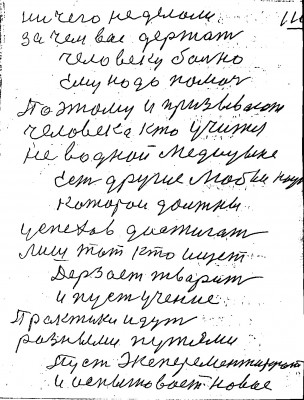 ничего неделали
зачем вас держат
человеку болно
Ему надо помоч
Поэтому и призывают
человека кто учится
не водной Медицыне
Ест другие
которои должны
успехов достигат
лиш тот кто ищет
Дерзает тварит
и пуст учение
Практики идут
разными путями
Пуст Эксперементируют
и испытовает новое